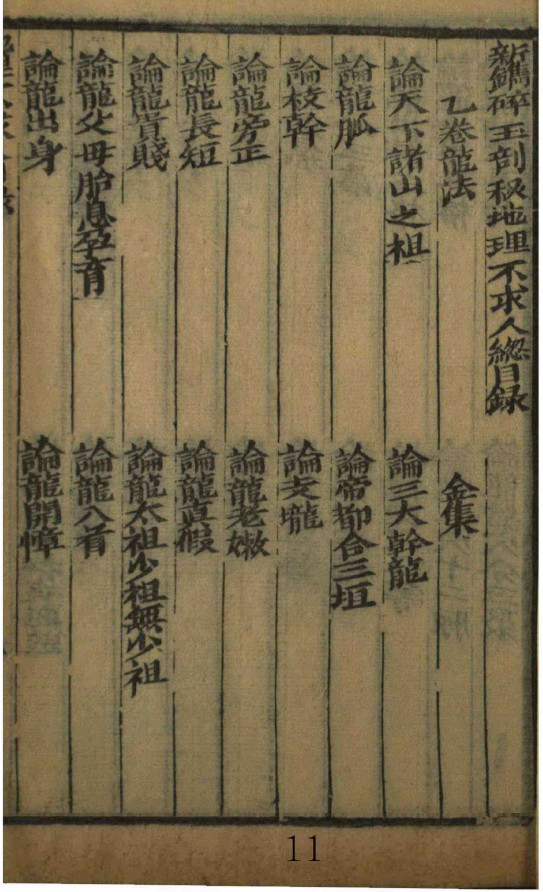 新鐫碎玉剖秘地理不求人緫目録
乙卷龍法　金集
論天下諸山之祖　論三大幹龍
論龍脉　論帝都合三垣
論枝幹　論支壠
論龍旁正　論龍老嫩
論龍長短　論龍真假
論龍貴賤　論龍太祖少祖無少祖
論龍父母胎息孕育　論龍入首
論龍出身　論龍開幛
11